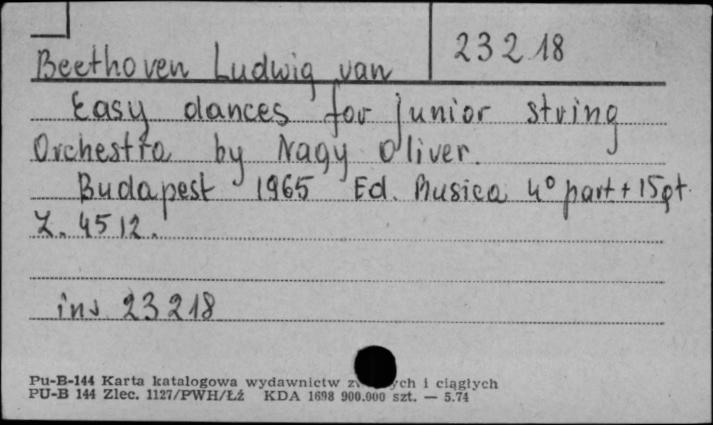 23218
Beethoven Ludwig van
Easy dances for junior string
Orchestra by Nagy Oliver.
Budapest 1965 Ed. Musica 4° part + 15 pt.
Z. 4512.
inv 23218
Pu-B-144 Karta katalogowa wydawnictw i ciągłych
PU-B 144 Zlec. 1127/PWH/Łź KDA 1698 900.000 szt. — 5.74